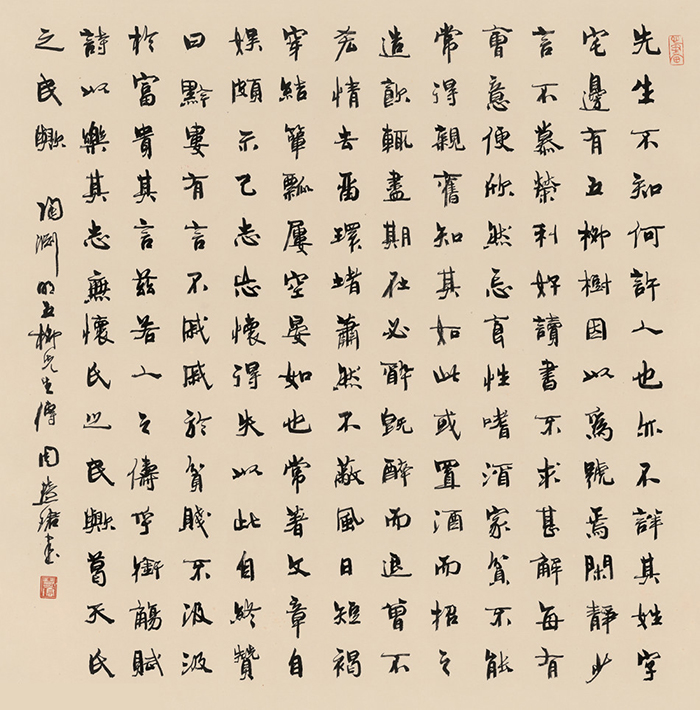 先生不知何許人也亦不詳其姓字
宅邊有五柳樹因以為號焉閑靜少
言不慕榮利好讀書不求甚解每有
會意便欣然忘食性嗜酒家貧不能
常得親舊知其如此或置酒而招之
造飲輒盡期在必醉既醉而退曾不
吝情去留環堵蕭然不蔽風日短褐
穿結簞瓢屢空晏如也常著文章自
娛頗示己志忘懷得失以此自終贊
曰黔婁有言不戚戚於貧賤不汲汲
於富貴其言茲若人之儔乎銜觴賦
詩以樂其志無懷氏之民歟葛天氏
之民歟 陶淵明五柳先生傳 周慧珺書